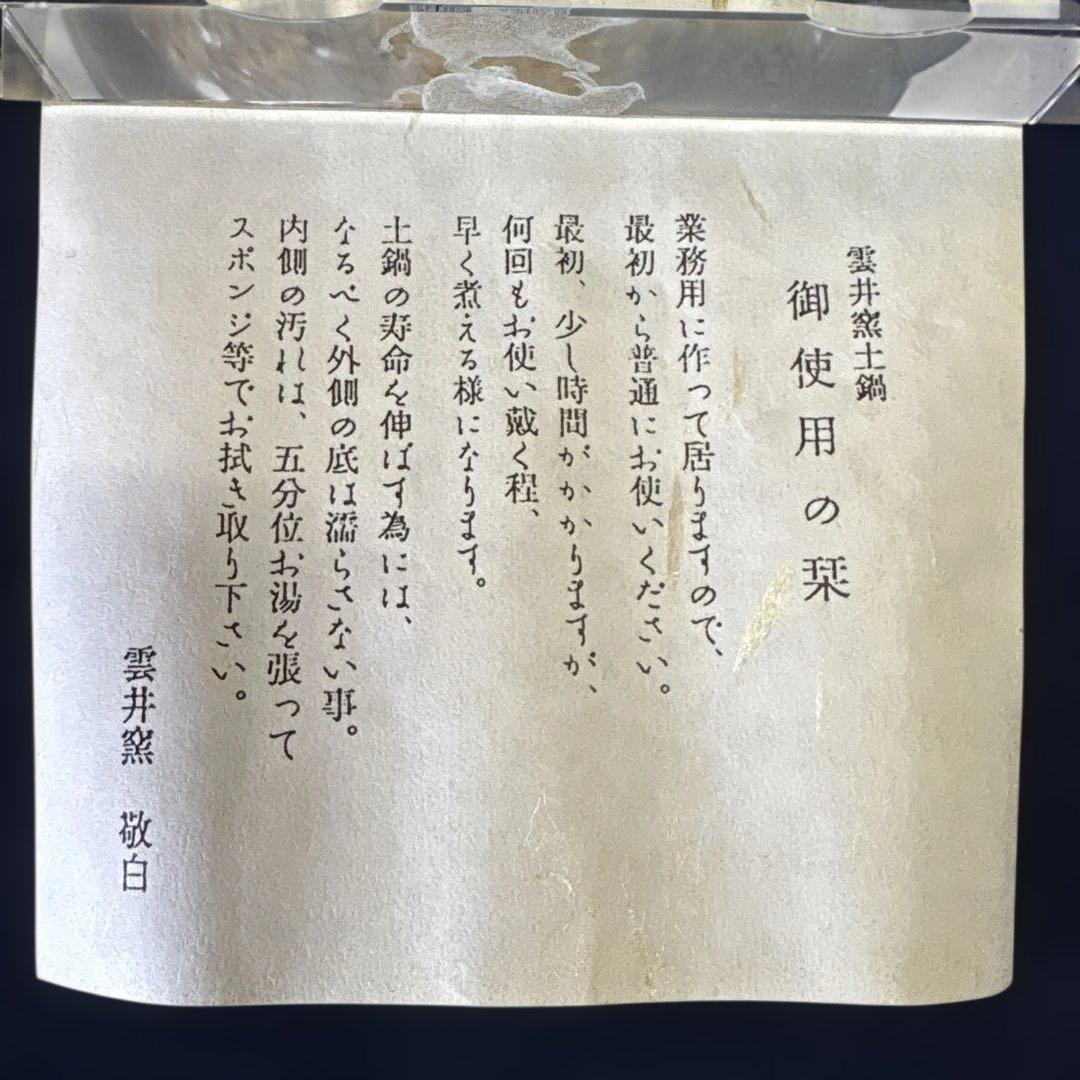 雲井窯土鍋
御使用の栞
業務用に作って居りますので、
最初から普通にお使いください。
最初、少し時間がかかりますが、
何回もお使い戴く程、
早く煮える様になります。
土鍋の寿命を伸ばす為には、
なるべく外側の底は濡らさない事。
内側の汚れは、五分位お湯を張って
スポンジ等でお拭き取り下さい。
雲井窯　敬白